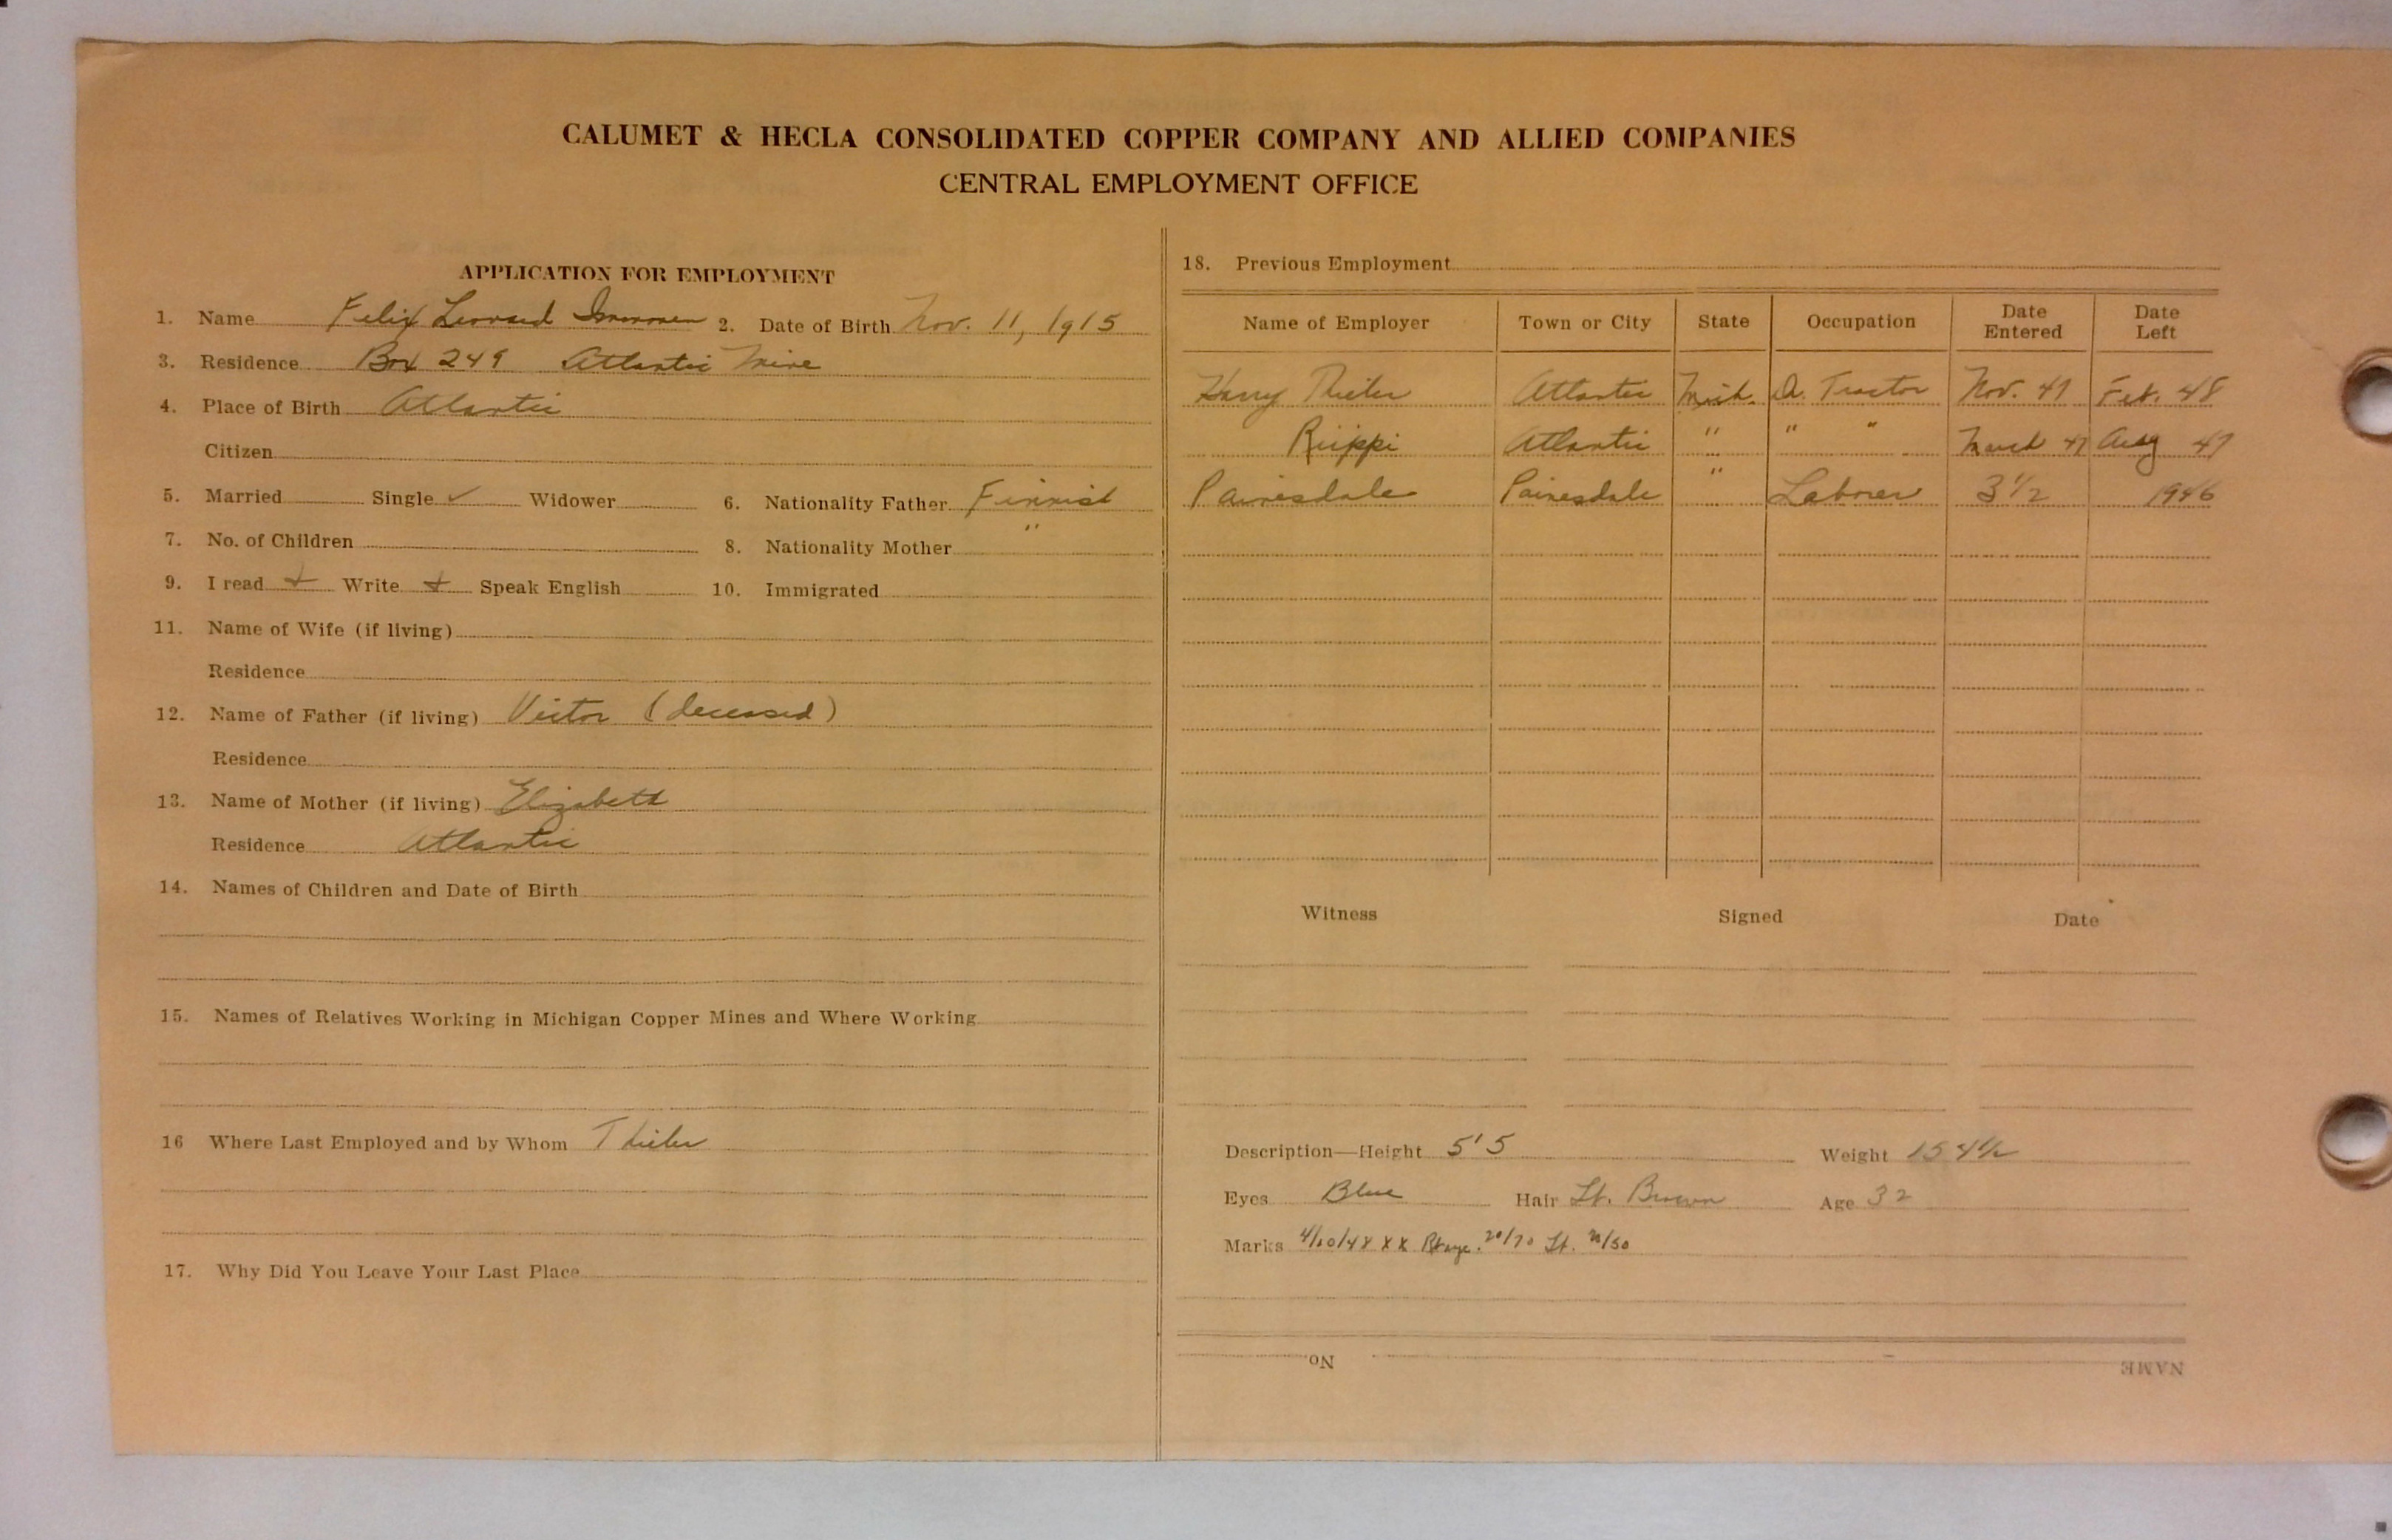 CALUMET & HECLA CONSOLIDATED COPPER COMPANY AND ALLIED COMPANIES
CENTRAL EMPLOYMENT OFFICE
APPLICATION FOR EMPLOYMENT
1. Name Felix Leonard Immonen 2. Date of Birth Nov. 11, 1915
3. Residence Box 249 Atlantic Mine
4. Place of Birth Atlantic
Citizen
5. Married Single ✓ Widower 6. Nationality Father Finnish
7. No. of Children 8. Nationality Mother "
9. I read + Write + Speak English 10. Immigrated
11. Name of Wife (if living)
Residence
12. Name of Father (if living) Victor (deceased)
Residence
13. Name of Mother (if living) Elizabeth
Residence Atlantic
14. Names of Children and Date of Birth
15. Names of Relatives Working in Michigan Copper Mines and Where Working
16 Where Last Employed and by Whom Thieler
17. Why Did You Leave Your Last Place
18. Previous Employment
Name of Employer Town or City State Occupation Date Entered Date Left
Harry Thieler Atlantic Mich. Tractor Nov. 47 Feb. 48
Ruippi Atlantic " " " March 47 Aug 47
Painesdale Painesdale " Laborer 3 1/2 1946
Witness Signed Date
Description—Height 5' 5 Weight 154 1/2
Eyes Blue Hair Lt. Brown Age 32
Marks 4/10/48 XX 20/70 Lt.
No. NAME